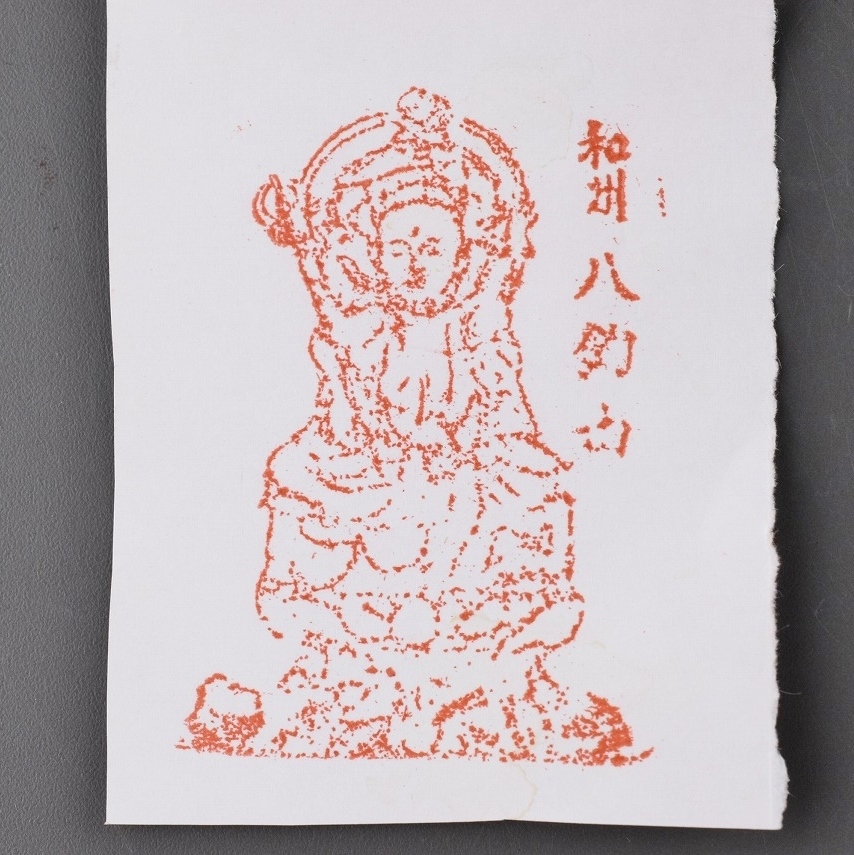 和州八釣山